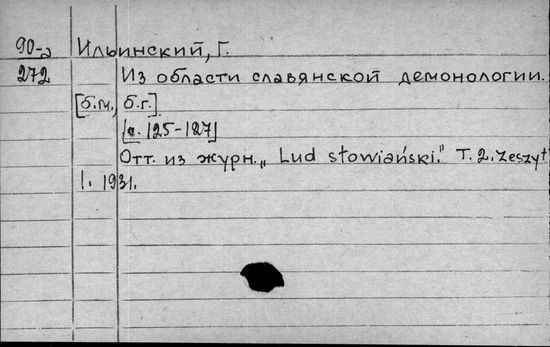 90-2 Ильинский, Г.
272 Из области славянской демонологии.
[б.м., б.г.]
[с. 125-127]
Отт. из журн. „Lud słowiański." Т. 2. Zeszyt
1. 1931.